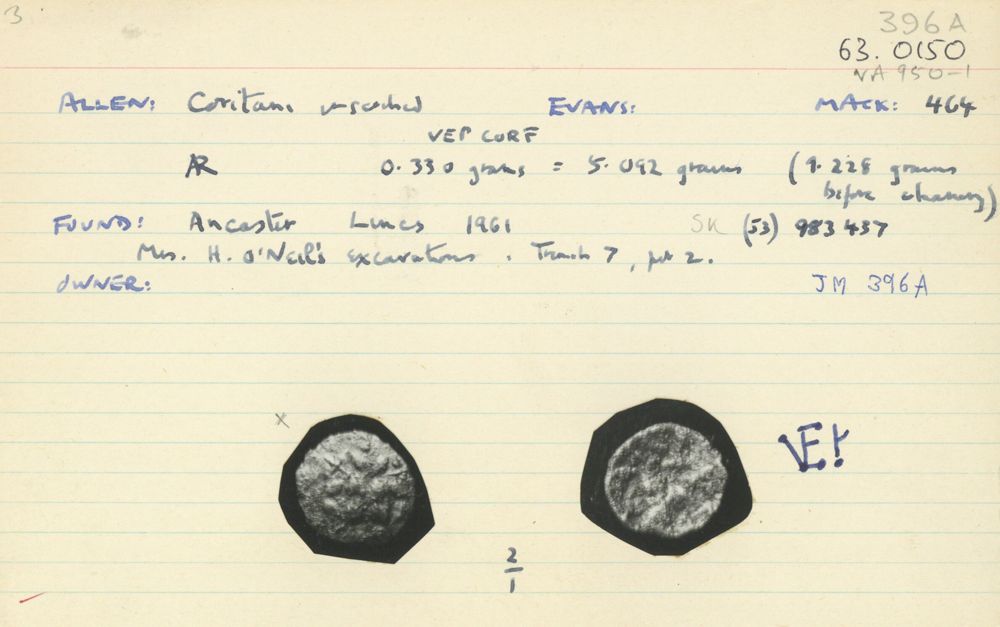 3
396A
63.0150
VA 950-1
ALLEN: Coritani EVANS: MACK: 464
VEP CORF
AR 0.330 grams = 5.092 grains (9.228 grains
before cleaning)
FOUND: Ancaster Lincs 1961 SK (53) 983437
Mrs. H. O'Neil's excavations. Trench 7, pit 2.
OWNER: JM 396A
x
VE
2
1